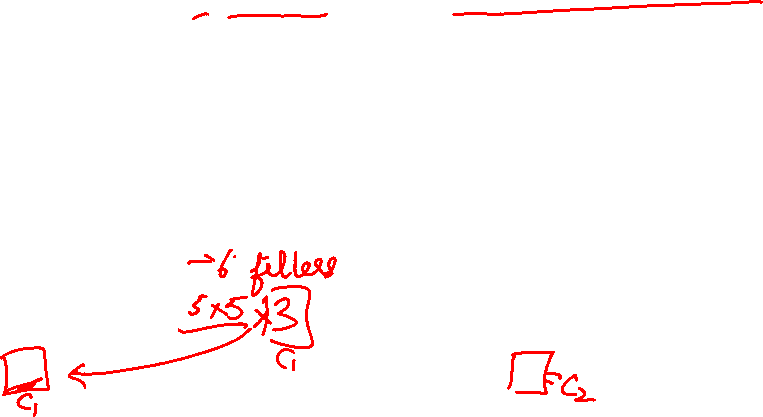 → 6 filters
5×5×3
C1
C1
C2